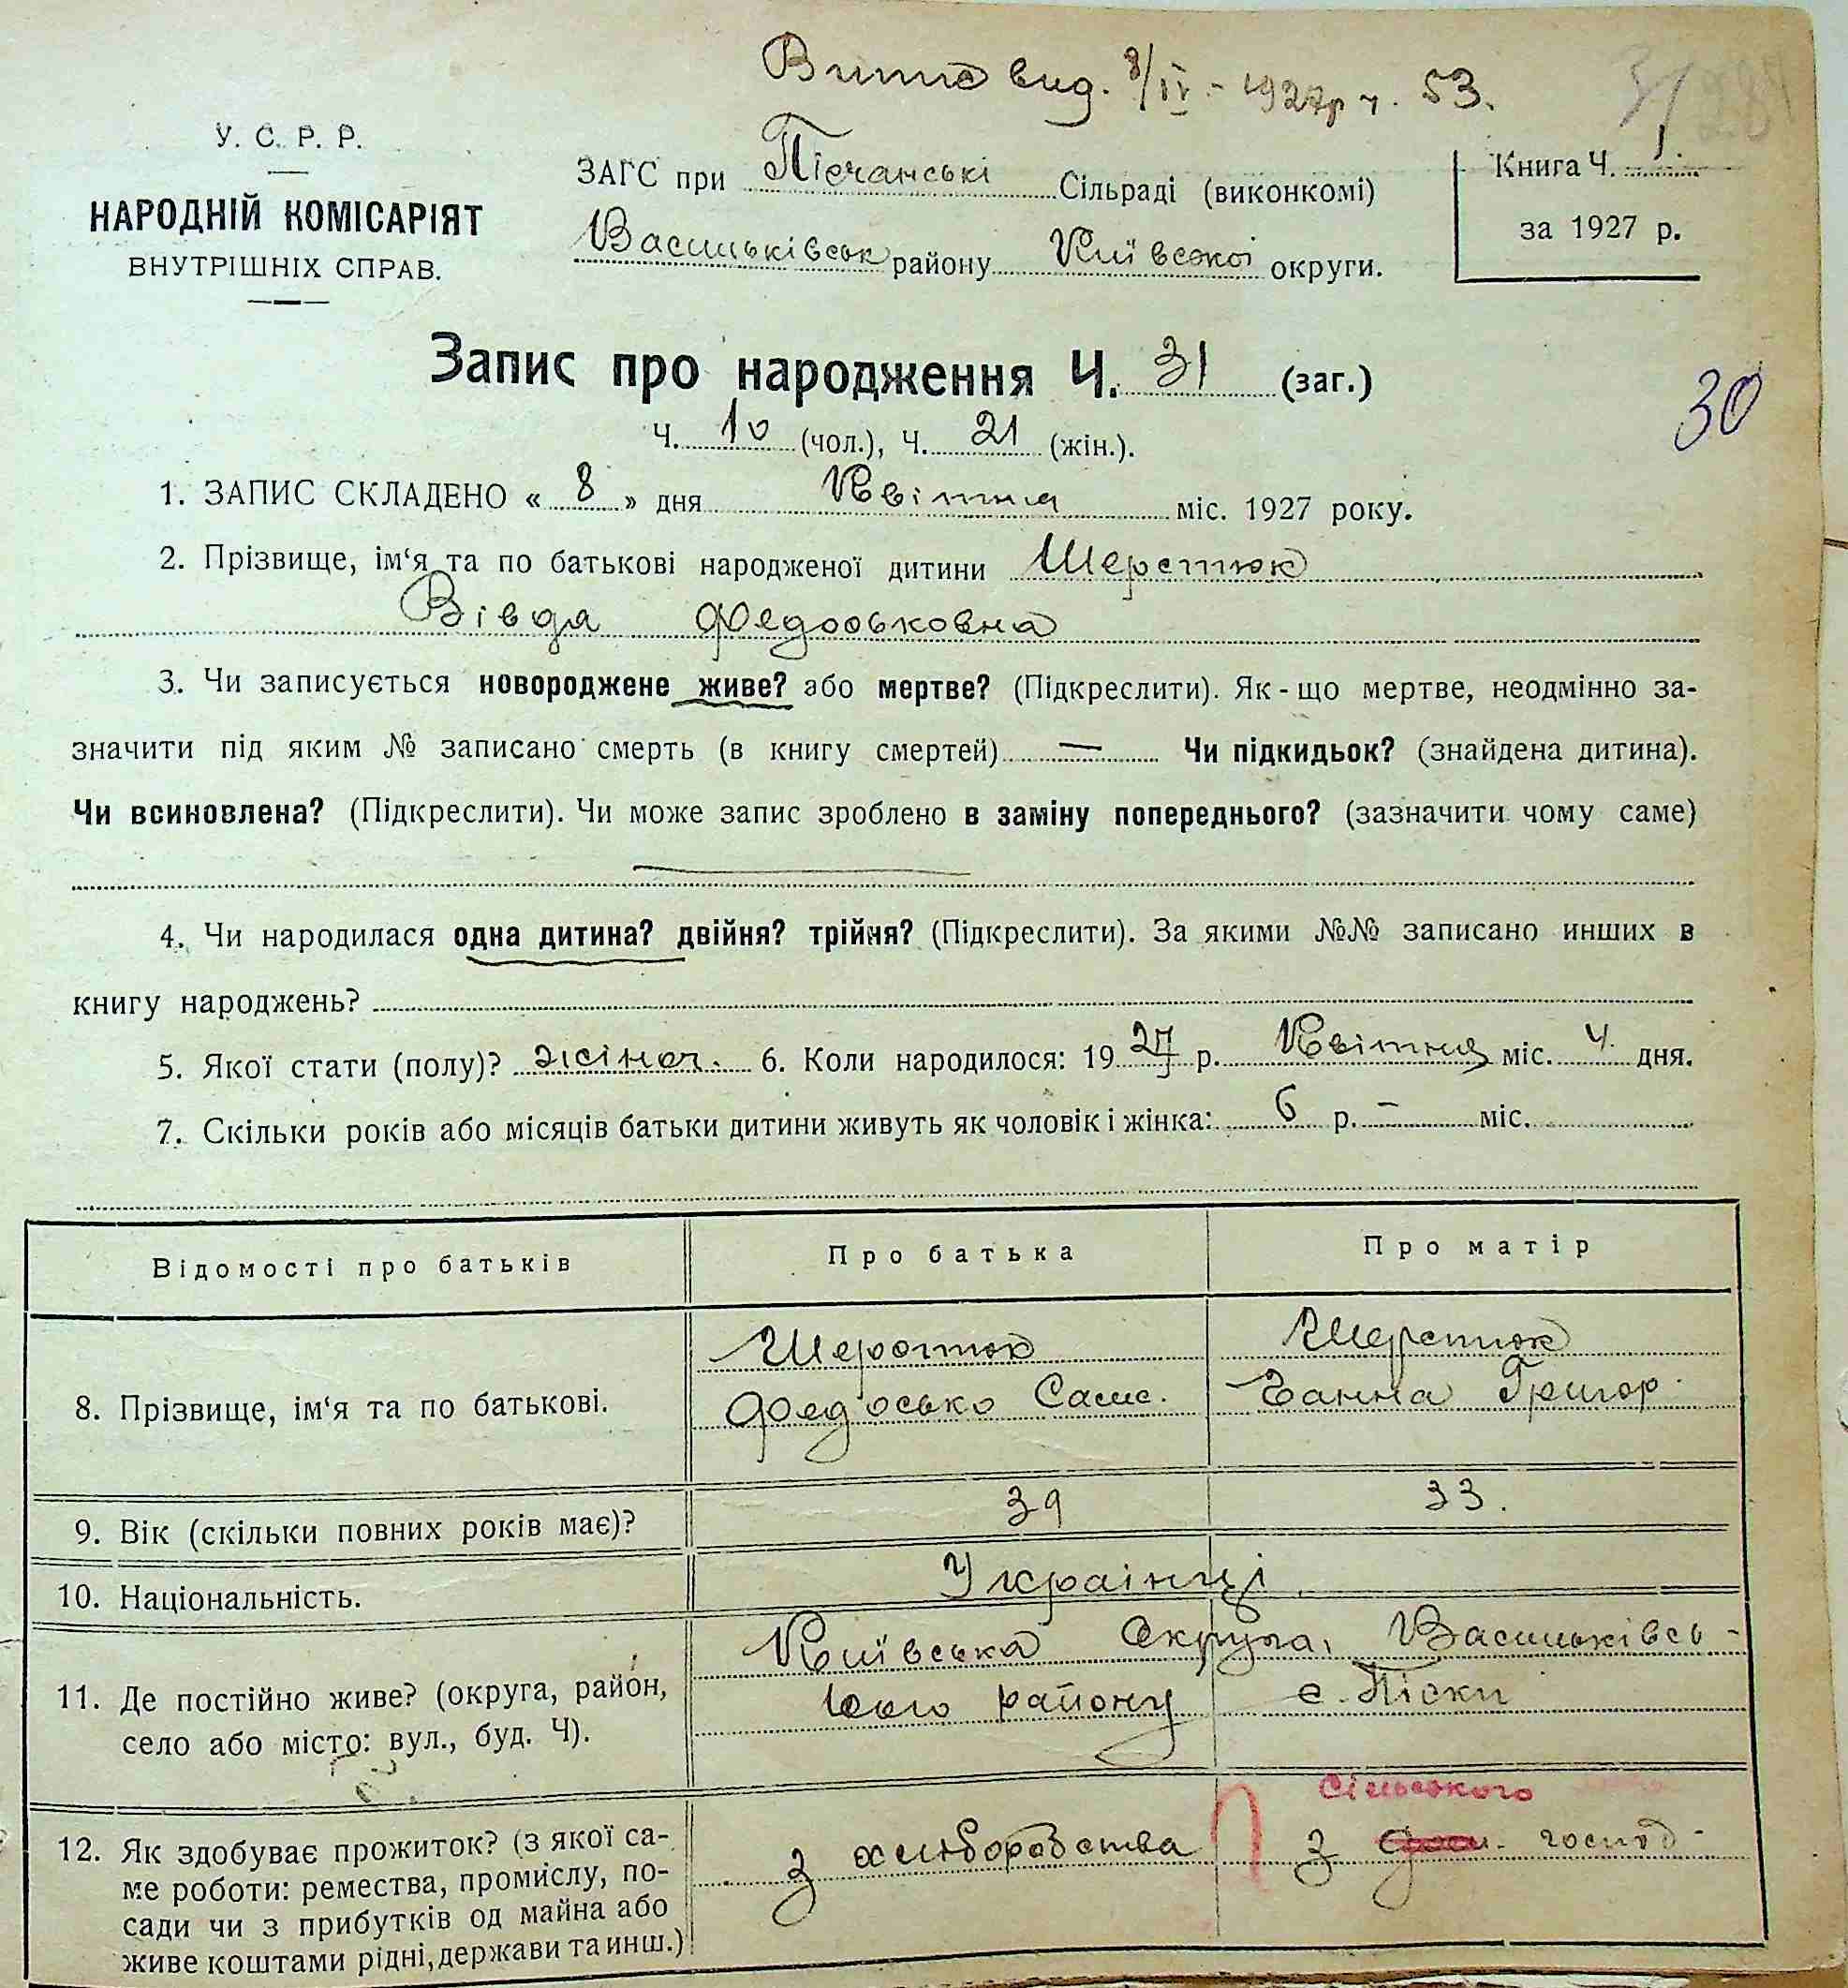 вид. 8/IV - 1927р ч. 53.
У. С. Р. Р.
НАРОДНІЙ КОМІСАРІЯТ
ВНУТРІШНІХ СПРАВ.
ЗАГС при Пісчанські Сільраді (виконкомі)
Васильківськ району Київської округи.
Книга Ч. 1.
за 1927 р.
Запис про народження Ч. 31 (заг.)
30
Ч. 10 (чол.), Ч. 21 (жін.).
1. ЗАПИС СКЛАДЕНО « 8 » дня Квітня міс. 1927 року.
2. Прізвище, ім‘я та по батькові народженої дитини Шерстюк
Вівдя Федоськовна
3. Чи записується новороджене живе? або мертве? (Підкреслити). Як-що мертве, неодмінно за-
значити під яким № записано смерть (в книгу смертей) — Чи підкидьок? (знайдена дитина).
Чи всиновлена? (Підкреслити). Чи може запис зроблено в заміну попереднього? (зазначити чому саме)
4. Чи народилася одна дитина? двійня? трійня? (Підкреслити). За якими №№ записано инших в
книгу народжень?
5. Якої стати (полу)? жіноч. 6. Коли народилося: 1927 р. Квітня міс. 4 дня.
7. Скільки років або місяців батьки дитини живуть як чоловік і жінка: 6 р. – міс.
Відомості про батьків Про батька Про матір
8. Прізвище, ім‘я та по батькові.
Шерстюк
Федосько Сам.
Шерстюк
Ганна Григор.
9. Вік (скільки повних років має)? 39 33.
10. Національність. Українці
11. Де постійно живе? (округа, район,
село або місто: вул., буд. Ч).
Київська Округа, Васильківсь-
кого району с. Піски
12. Як здобуває прожиток? (з якої са-
ме роботи: ремества, промислу, по-
сади чи з прибутків од майна або
живе коштами рідні, держави та инш.)
з хліборобства
Сільського
з господ-